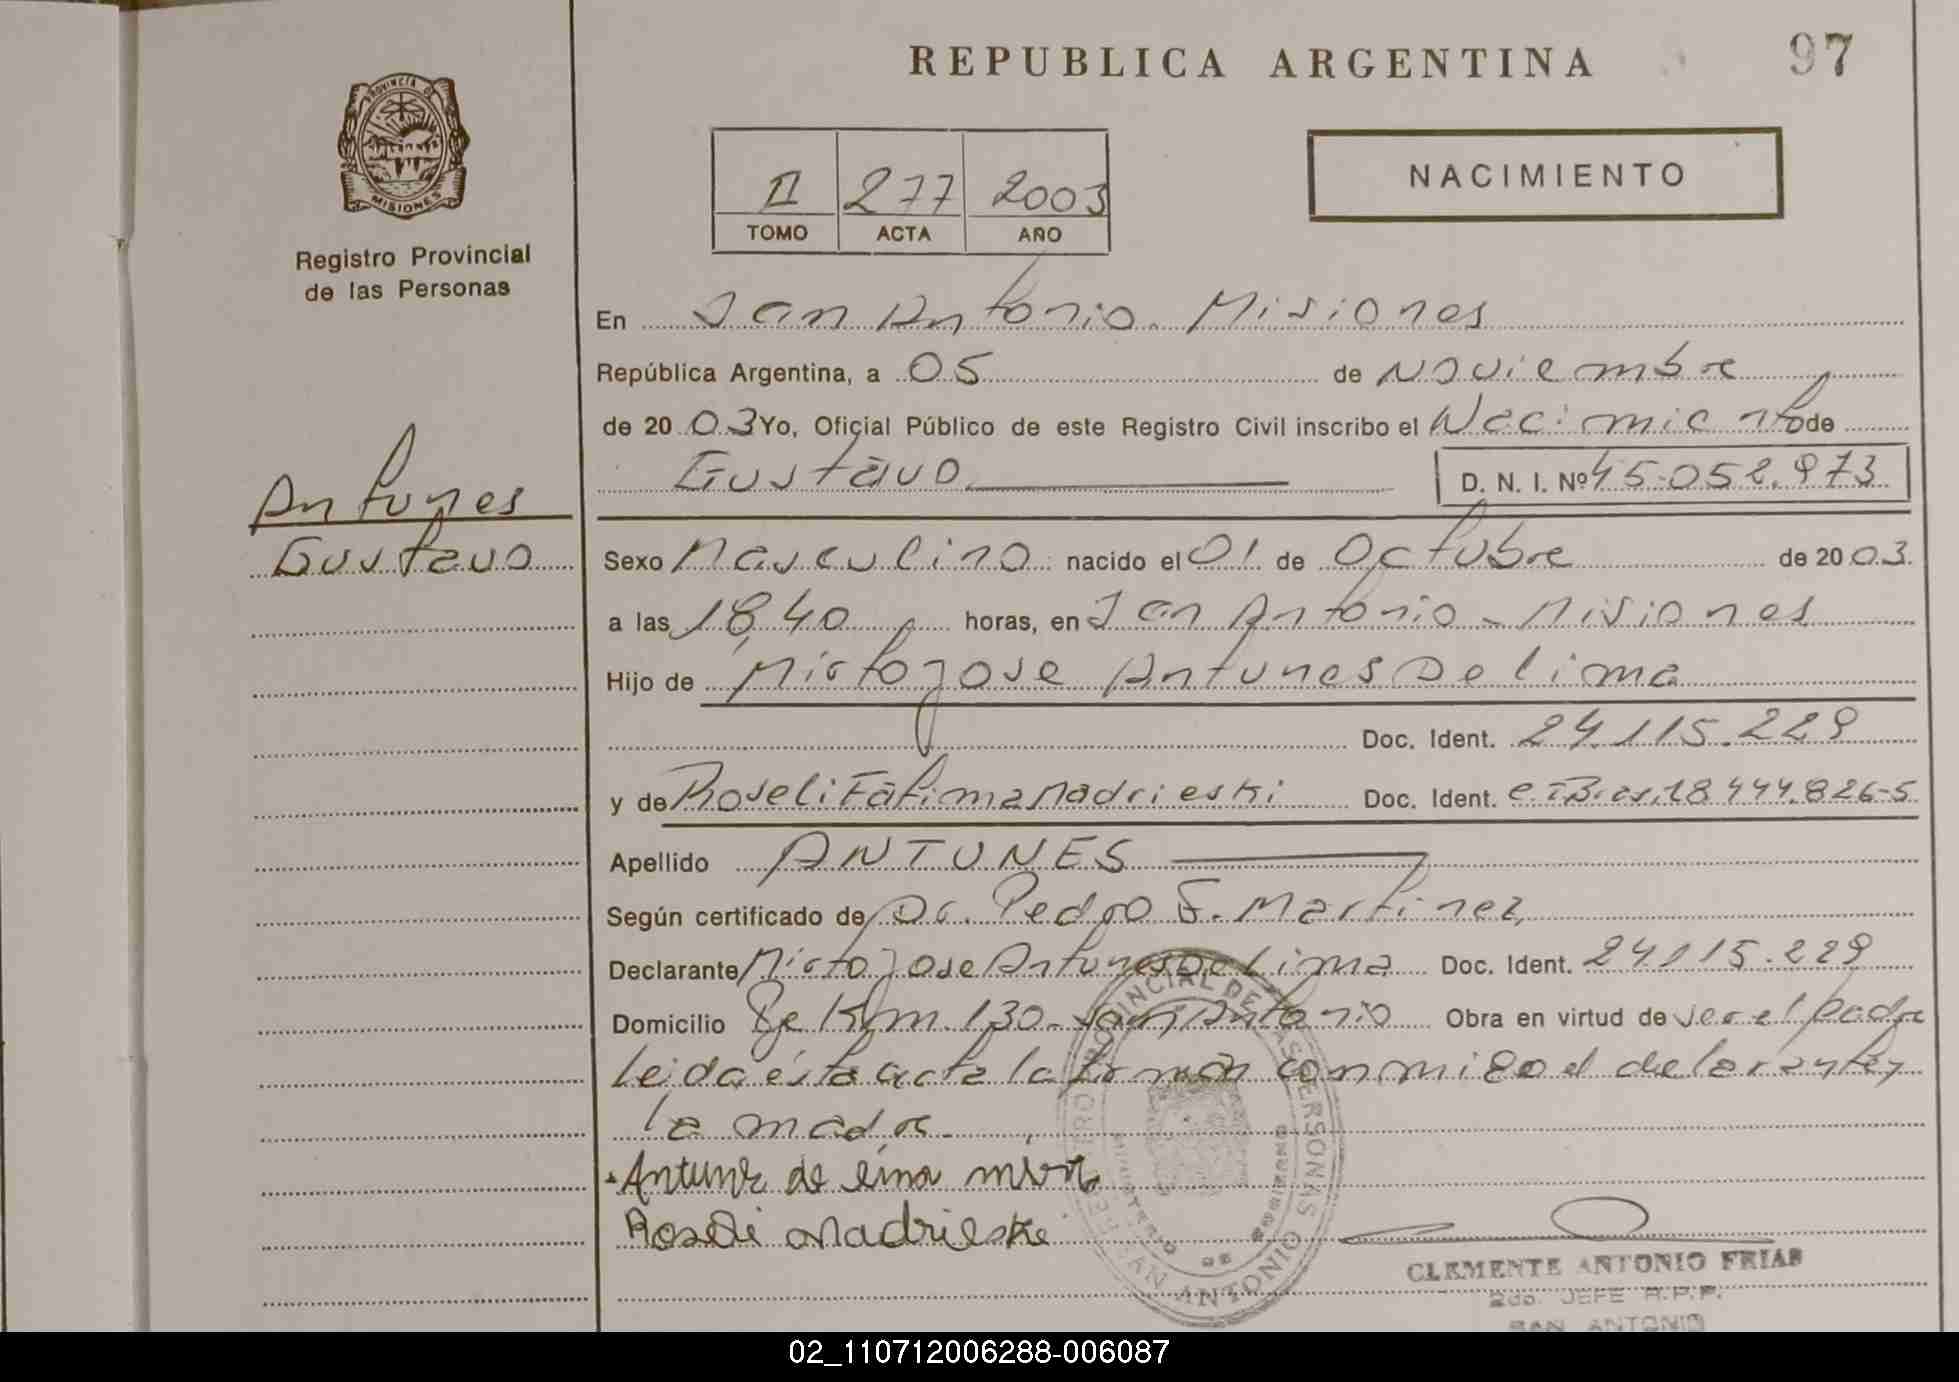 REPUBLICA ARGENTINA
97
PROVINCIA DE
MISIONES
Registro Provincial
de las Personas
II 277 2003
TOMO ACTA AÑO
NACIMIENTO
En San Antonio. Misiones
República Argentina, a 05 de Noviembre
de 2003 Yo, Oficial Público de este Registro Civil inscribo el Nacimiento de
Gustavo
D. N. I. Nº 45.052.973
Antunes
Gustavo
Sexo Masculino nacido el 01 de Octubre de 2003.
a las 18,40 horas, en San Antonio - Misiones
Hijo de Mirto Jose Antunes De lima
Doc. Ident. 24.115.229
y de Roseli Fátima Madrieski Doc. Ident. 18.444.826-5
Apellido ANTUNES
Según certificado de Dr. Pedro F. Martinez
Declarante Mirto Jose Antunes De Lima Doc. Ident. 24.115.229
Domicilio Pje Km. 130 - San Antonio Obra en virtud de ser el padre
Leida ésta acta la firman conmigo el delarante y
la madre.
Antune de lima
Roseli Madrieske
REGISTRO PROVINCIAL DE LAS PERSONAS
MINISTERIO DE GOBIERNO
SAN ANTONIO
CLEMENTE ANTONIO FRIAS
2do. JEFE R.P.P.
SAN ANTONIO
02_110712006288-006087